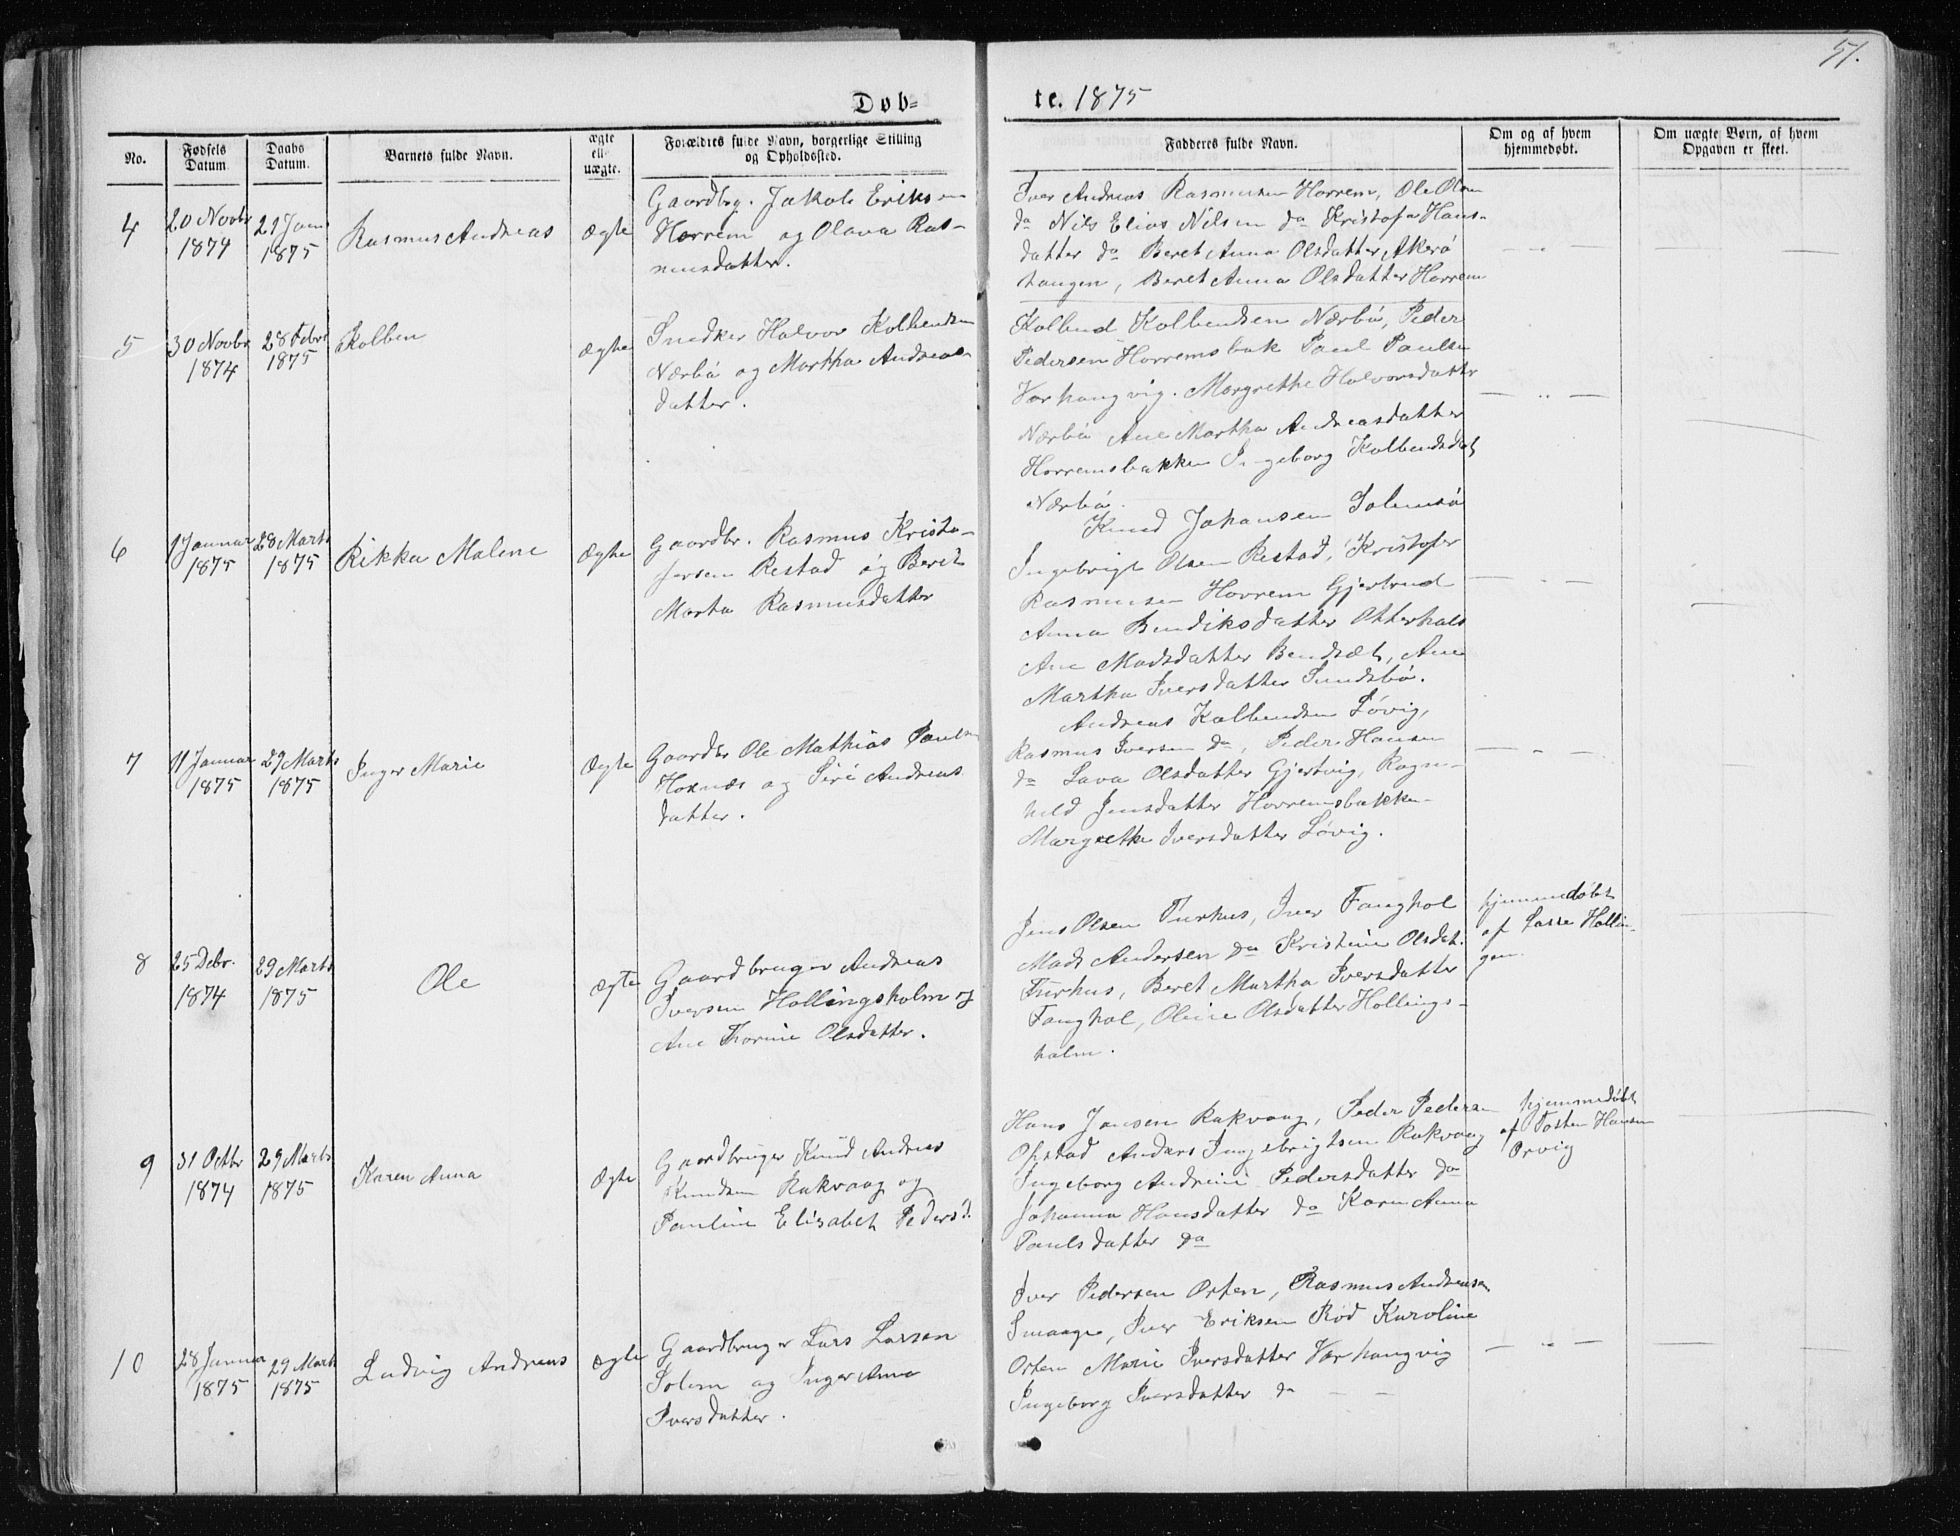 51.
Døb-
te. 1875
No.
Fødsels Datum
Daabs Datum.
Barnets fulde Navn.
ægte ell. uægte.
Forældres fulde Navn, borgerlige Stilling og Opholdssted.
Fadderes fulde Navn.
Om og af hvem hjemmedøbt.
Om uægte Børn, af hvem Opgaven er skeet.
4
20 Novbr 1874
21 Janr 1875
Rasmus Andreas
Ægte
Gaardbrg. Jakob Eriksen
Horrem og Olava Ras-
musdatter.
Iver Andreas Rasmusen Horrem, Ole Olsen
do Nils Elias Nilsen do Kristofa Hans-
datter do Beret Anna Olsdatter Akerø
haugen, Beret Anna Olsdatter Horrem
5
30 Novbr 1874
28 Febr 1875
Kolben
Ægte
Snedker Halvor Kolbensen
Nærbø og Martha Andreas-
datter.
Kolbend Kolbendsen Nærbø, Peder
Pedersen Horremsbak Paul Paulsen
Varhaugvig. Margrethe Halvorsdatter
Nærbø Ane Martha Andreasdatter
Horremsbakken Ingeborg Kolbendsdat
Nærbø.
6
1 Januar 1875
28 Marts 1875
Rikka Malene
Ægte
Gaardbr. Rasmus Kristo-
fersen Restad og Berit
Marta Rasmusdatter
Knud Johansen Solemsø
Ingebrigt Olsen Restad, Kristofer
Rasmusen Horrem Gjertrud
Anna Bendiksdatter Otterhals
Ane Madsdatter Bendsæt, Ane
Martha Iversdatter Sundsbø.
7
11 Januar 1875
29 Marts 1875
Inger Marie
Ægte
Gaardbr Ole Mathias Paulsen
Hoxnæs og Siri Andreas
datter.
Andreas Kolbendsen Løvig,
Rasmus Iversen do, Peder Hansen
do Lava Olsdatter Gjertvig, Ragn-
hild Jensdatter Horremsbakken
Margrethe Iversdatter Løvig.
8
25 Debr. 1874
29 Marts 1875
Ole
ægte
Gaardbruger Andreas
Iversen Hollingsholm og
Ane Thorine Olsdatter.
Jens Olsen Furhus, Iver Fanghol
Mads Andersen do Kristine Olsdat.
Furhus, Beret Martha Iversdatter
Fanghol, Oline Olsdatter Hollings-
holm.
hjemmedøbt
af Lasse Hollin-
gen.
9
31 Octbr 1874
29 Marts 1875
Karen Anna
Ægte
Gaardbruger Knud Andreas
Knudsen Rakvaag og
Pauline Elisabet Pedersd.
Hans Jansen Rakvaag, Peder Pedersen
Opstad Anders Ingebrigtsen Rakvaag
Ingeborg Andrine Pedersdatter do
Johanna Hansdatter do Karen Anna
Paulsdatter do
hjemmedøbt
af Tosten Hansen
Orvig
10
28 Januar 1875
29 Marts 1875
Ludvig Andreas
ægte
Gaardbruger Lars Larsen
Solem og Inger Anna
Iversdatter.
Iver Pedersen Orten, Rasmus Andreasen
Smaage, Iver Eriksen Rød Karoline
Orten Marie Iversdatter Varhaugvig
Ingeborg Iversdatter do